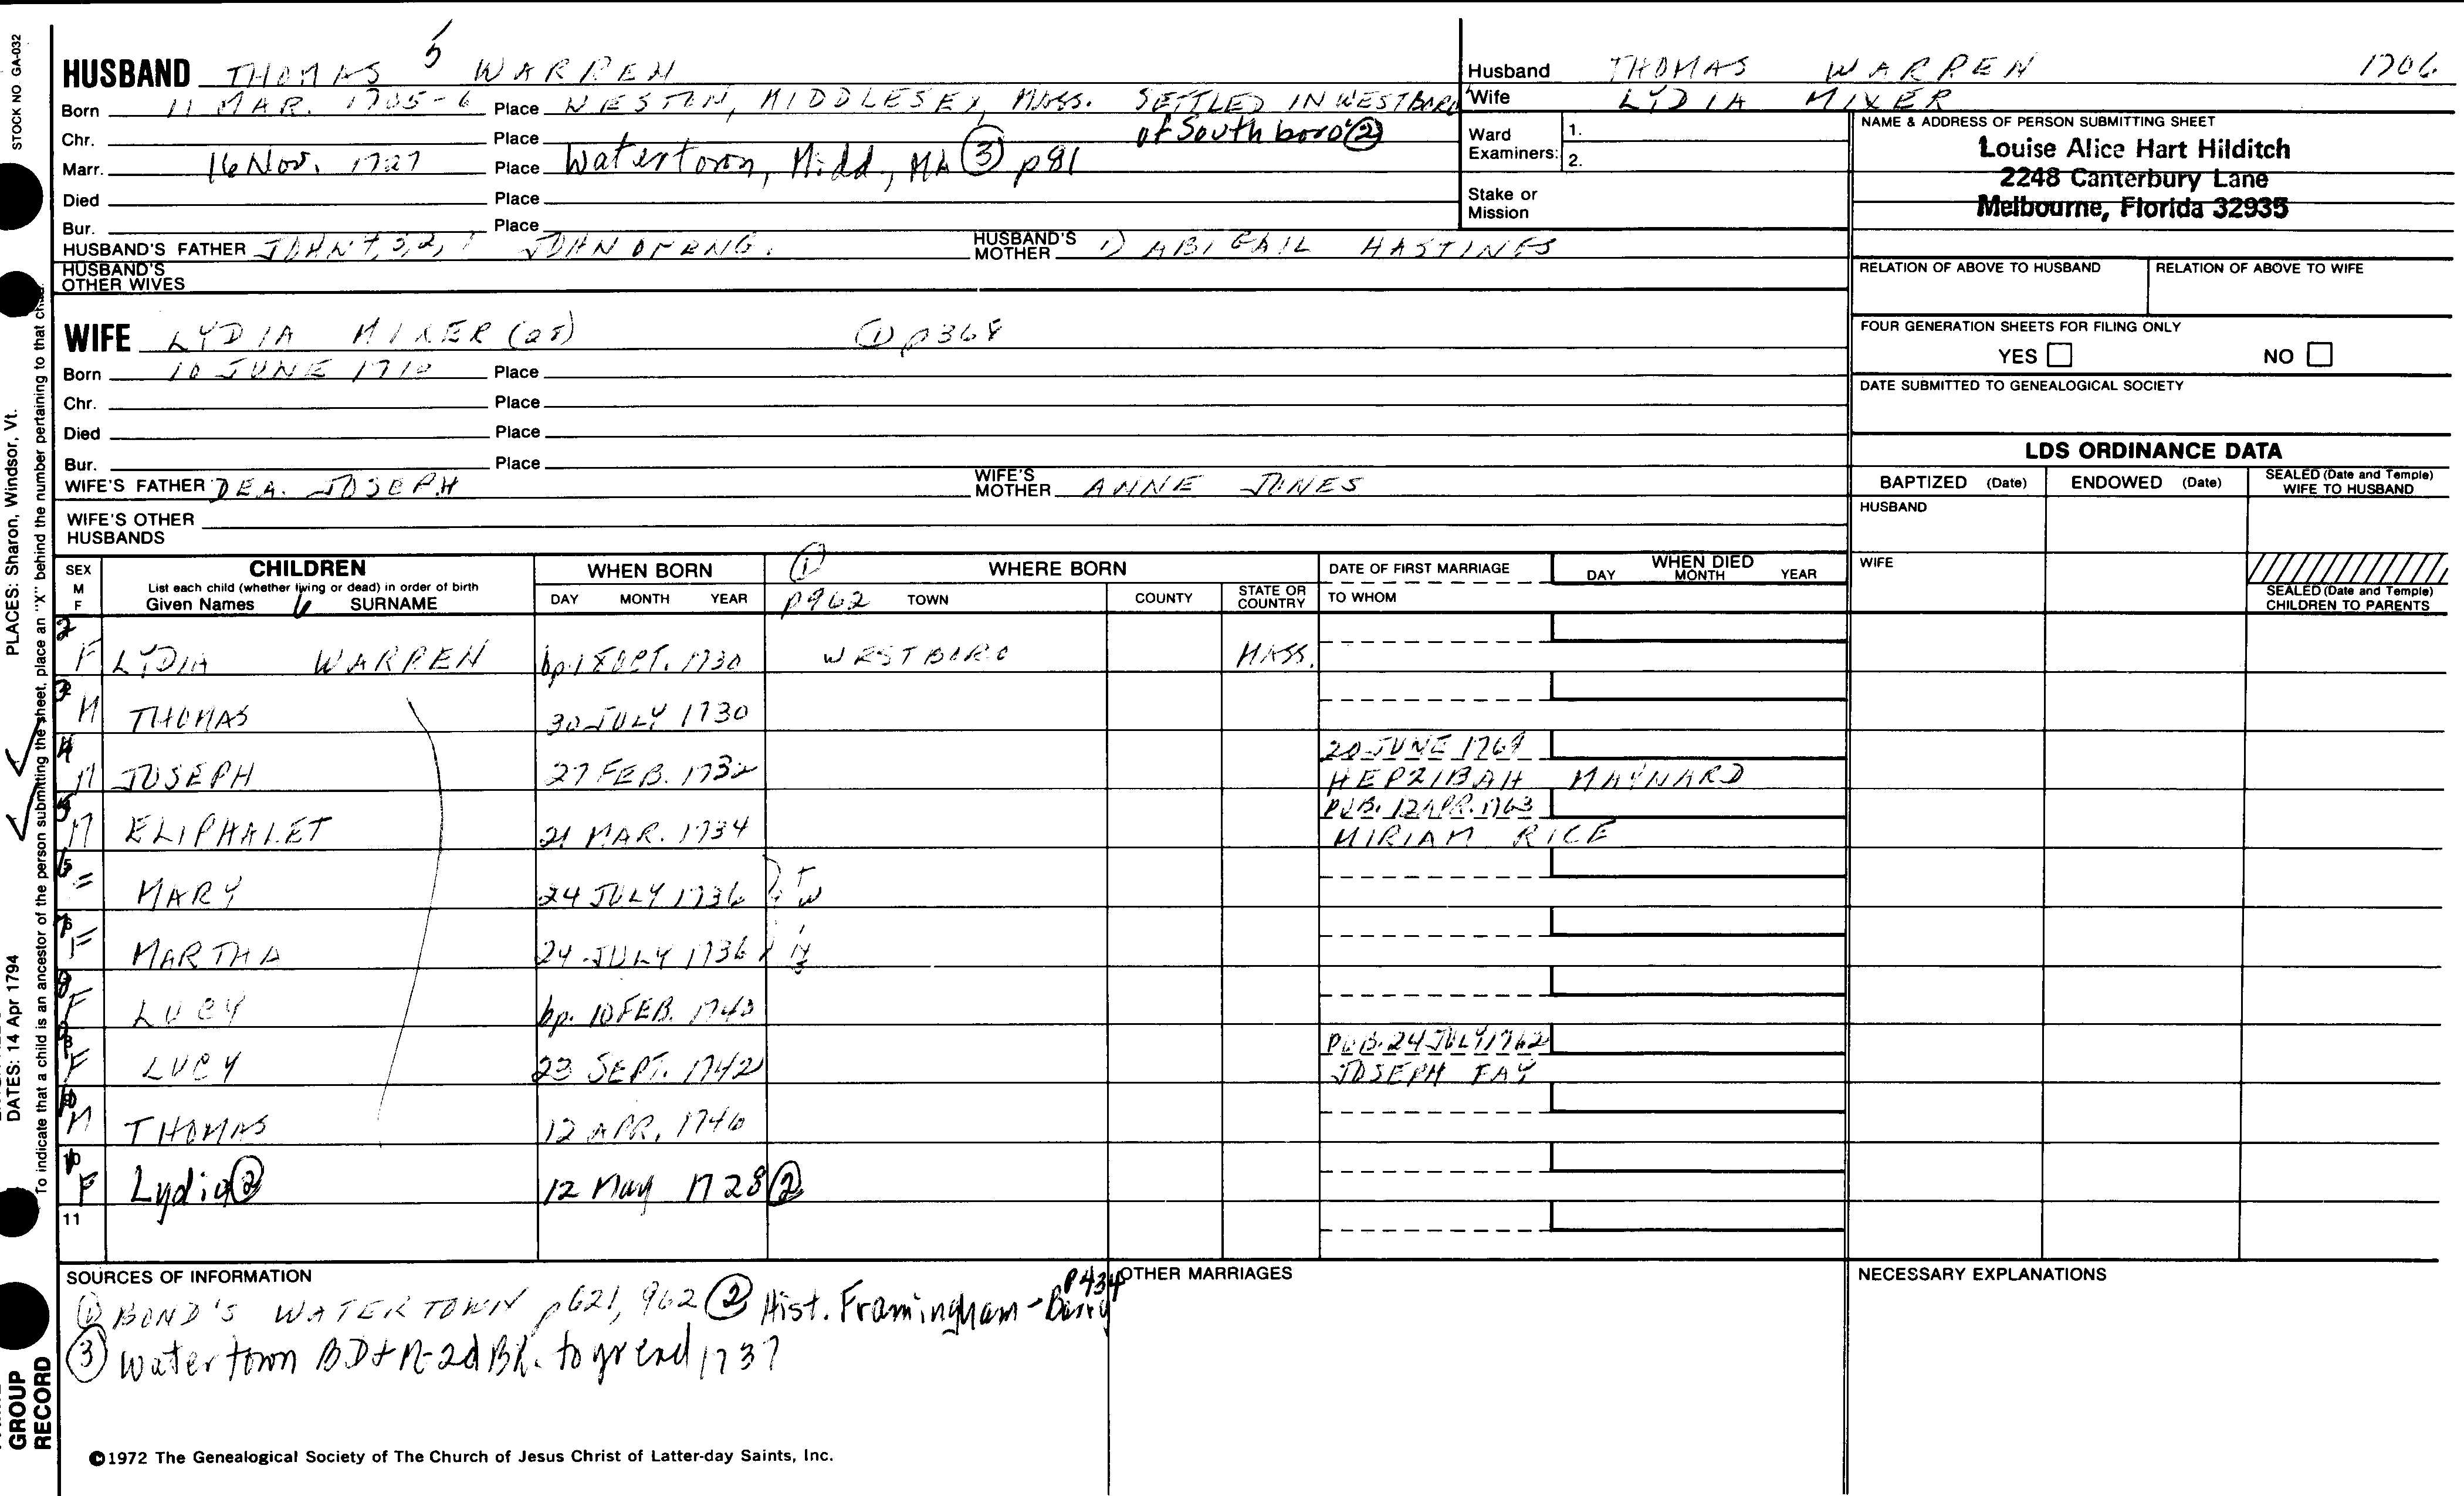 5
HUSBAND THOMAS WARREN
Born 11 MAR. 1705-6 Place WESTON, MIDDLESEX, MASS. SETTLED IN WESTBORO
Chr. Place of Southboro' ②
Marr. 16 Nov. 1727 Place Watertown, Midd., MA ③ p81
Died Place
Bur. Place
HUSBAND'S FATHER JOHN 4,3,2,1 JOHN OF ENG. HUSBAND'S MOTHER 1) ABIGAIL HASTINGS
HUSBAND'S OTHER WIVES
Husband THOMAS WARREN 1706
Wife LYDIA MIXER
Ward Examiners: 1.
2.
Stake or Mission
NAME & ADDRESS OF PERSON SUBMITTING SHEET
Louise Alice Hart Hilditch
2248 Canterbury Lane
Melbourne, Florida 32935
RELATION OF ABOVE TO HUSBAND RELATION OF ABOVE TO WIFE
FOUR GENERATION SHEETS FOR FILING ONLY
YES NO
DATE SUBMITTED TO GENEALOGICAL SOCIETY
WIFE LYDIA MIXER ① p368
Born 10 JUNE 1710 Place
Chr. Place
Died Place
Bur. Place
WIFE'S FATHER DEA. JOSEPH WIFE'S MOTHER ANNE JONES
WIFE'S OTHER HUSBANDS
LDS ORDINANCE DATA
BAPTIZED (Date) ENDOWED (Date) SEALED (Date and Temple) WIFE TO HUSBAND
HUSBAND
WIFE
SEALED (Date and Temple) CHILDREN TO PARENTS
SEX M F
CHILDREN
List each child (whether living or dead) in order of birth
Given Names 6 SURNAME
WHEN BORN
DAY MONTH YEAR
① WHERE BORN
p962 TOWN COUNTY STATE OR COUNTRY
DATE OF FIRST MARRIAGE
TO WHOM
WHEN DIED
DAY MONTH YEAR
2 F LYDIA WARREN bp. 1730 WESTBORO MASS.
3 M THOMAS 30 JULY 1730
4 M JOSEPH 27 FEB. 1732 20 JUNE 1769
HEPZIBAH MAYNARD
5 M ELIPHALET 21 MAR. 1734 PUB. 12 APR. 1763
MIRIAM RICE
6 F MARY 24 JULY 1736 TW
7 F MARTHA 24 JULY 1736 INS
8 F LUCY bp. 10 FEB. 1740
9 F LUCY 23 SEPT. 1742 PUB. 24 JULY 1762
JOSEPH FAY
10 M THOMAS 12 APR. 1746
F Lydia ② 12 May 1728 ②
11
SOURCES OF INFORMATION
① BOND'S WATERTOWN p621, 962 ② Hist. Framingham - Barry p434
③ Watertown BD+M-2d BK. to yr end 1737
OTHER MARRIAGES
NECESSARY EXPLANATIONS
©1972 The Genealogical Society of The Church of Jesus Christ of Latter-day Saints, Inc.
STOCK NO GA-032
PLACES: Sharon, Windsor, Vt.
DATES: 14 Apr 1794
To indicate that a child is an ancestor of the person submitting the sheet, place an "X" behind the number pertaining to that child.
GROUP
RECORD